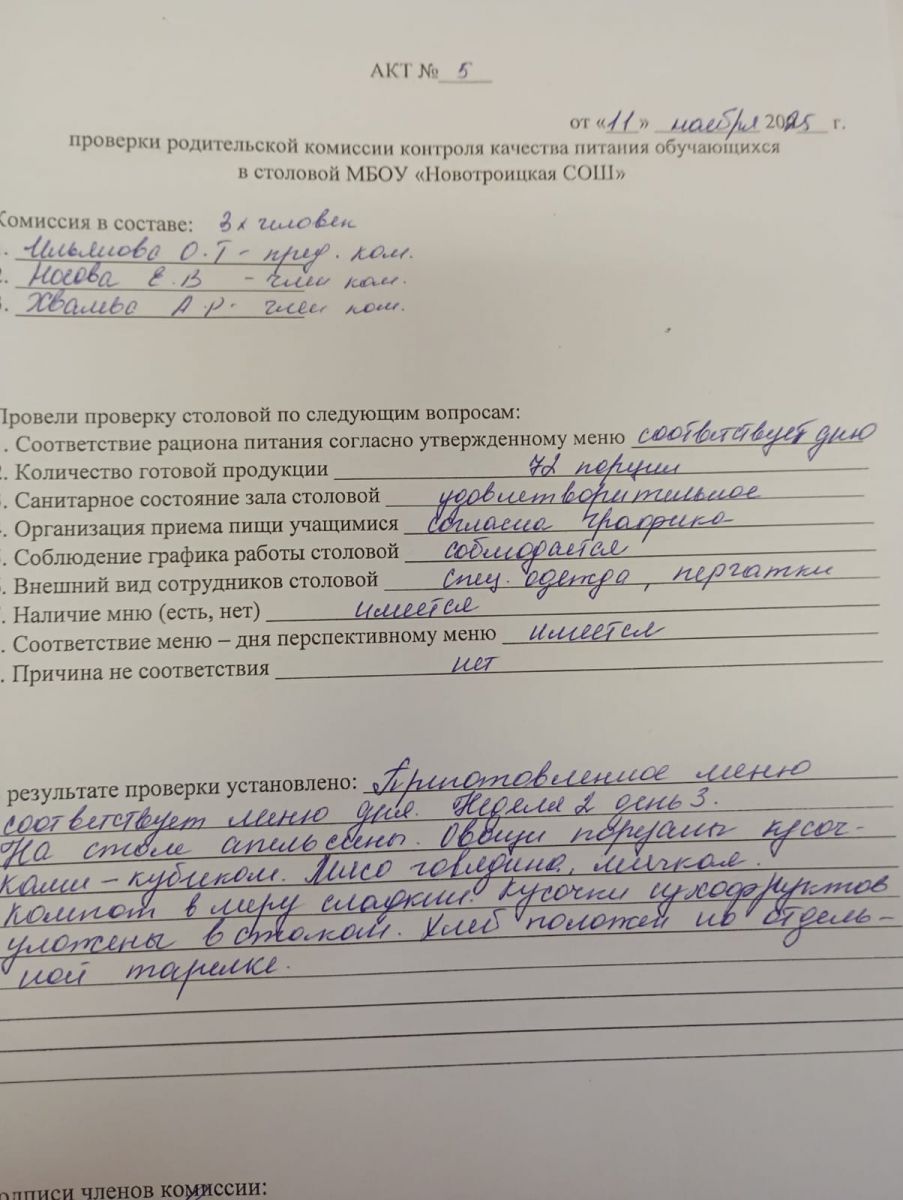 АКТ № 5
от «11» ноября 2025 г.
проверки родительской комиссии контроля качества питания обучающихся
в столовой МБОУ «Новотроицкая СОШ»
Комиссия в составе: 3х человек
О.Т - пред. ком.
. Носова Е.В - член ком.
. А.Р. член ком.
Провели проверку столовой по следующим вопросам:
. Соответствие рациона питания согласно утвержденному меню соответствует дню
. Количество готовой продукции 72 порции
. Санитарное состояние зала столовой удовлетворительное
. Организация приема пищи учащимися согласно графика
. Соблюдение графика работы столовой соблюдается
. Внешний вид сотрудников столовой спец. одежда, перчатки
. Наличие мню (есть, нет) имеется
. Соответствие меню – дня перспективному меню имеется
. Причина не соответствия нет
результате проверки установлено: Приготовленное меню
соответствует меню дня. Неделя 2 день 3.
На столе апельсины. Овощи порезаны кусоч-
ками – кубиком. Мясо говядина, мягкая.
Компот в меру сладкий. Кусочки сухофруктов
уложены в стакан. Хлеб положен по отдель-
ной тарелке.
одписи членов комиссии: